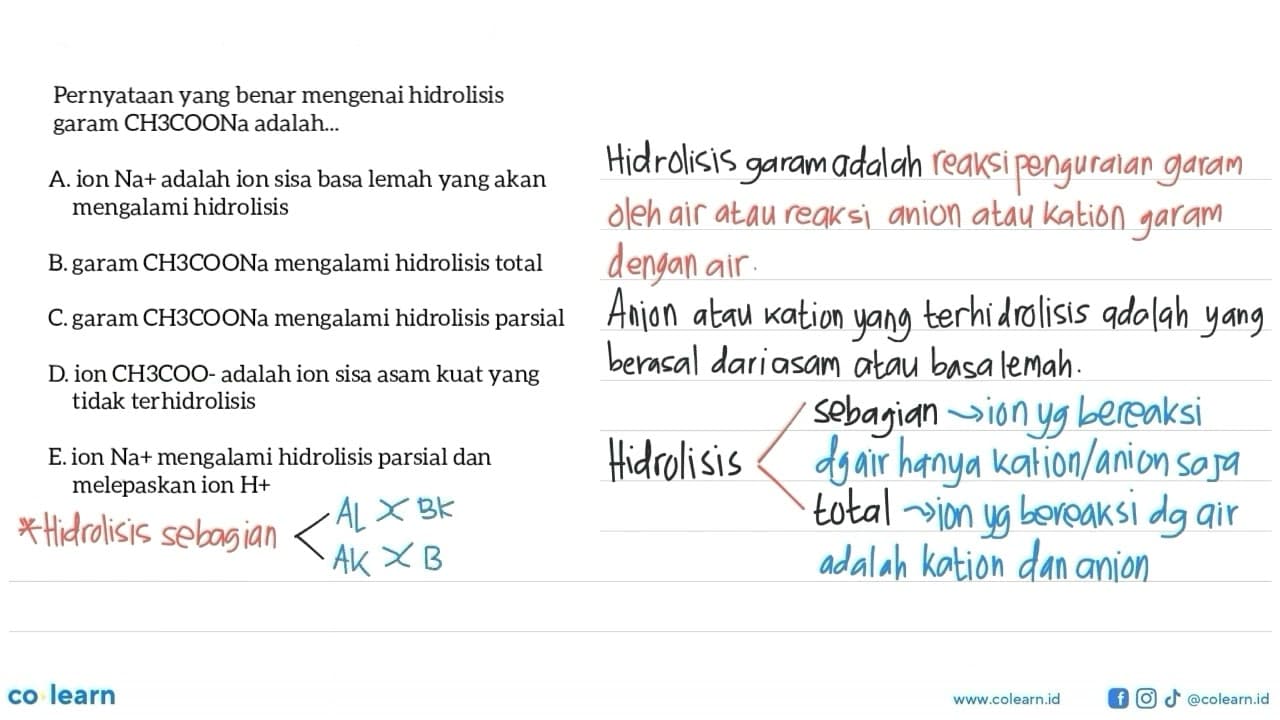 Pernyataan yang benar mengenai hidrolisis
garam CH3COONa adalah...
A. ion Na+ adalah ion sisa basa lemah yang akan
mengalami hidrolisis
B. garam CH3COONa mengalami hidrolisis total
C. garam CH3COONa mengalami hidrolisis parsial
D. ion CH3COO- adalah ion sisa asam kuat yang
tidak terhidrolisis
E. ion Na+ mengalami hidrolisis parsial dan
melepaskan ion H+
*Hidrolisis sebagian < AL X BK
AK X B
Hidrolisis garam adalah reaksi penguraian garam
oleh air atau reaksi anion atau kation garam
dengan air.
Anion atau kation yang terhidrolisis adalah yang
berasal dari asam atau basa lemah.
sebagian → ion yg bereaksi
Hidrolisis < dg air hanya kation/anion saja
total → ion yg bereaksi dg air
adalah kation dan anion
co learn
www.colearn.id
@colearn.id